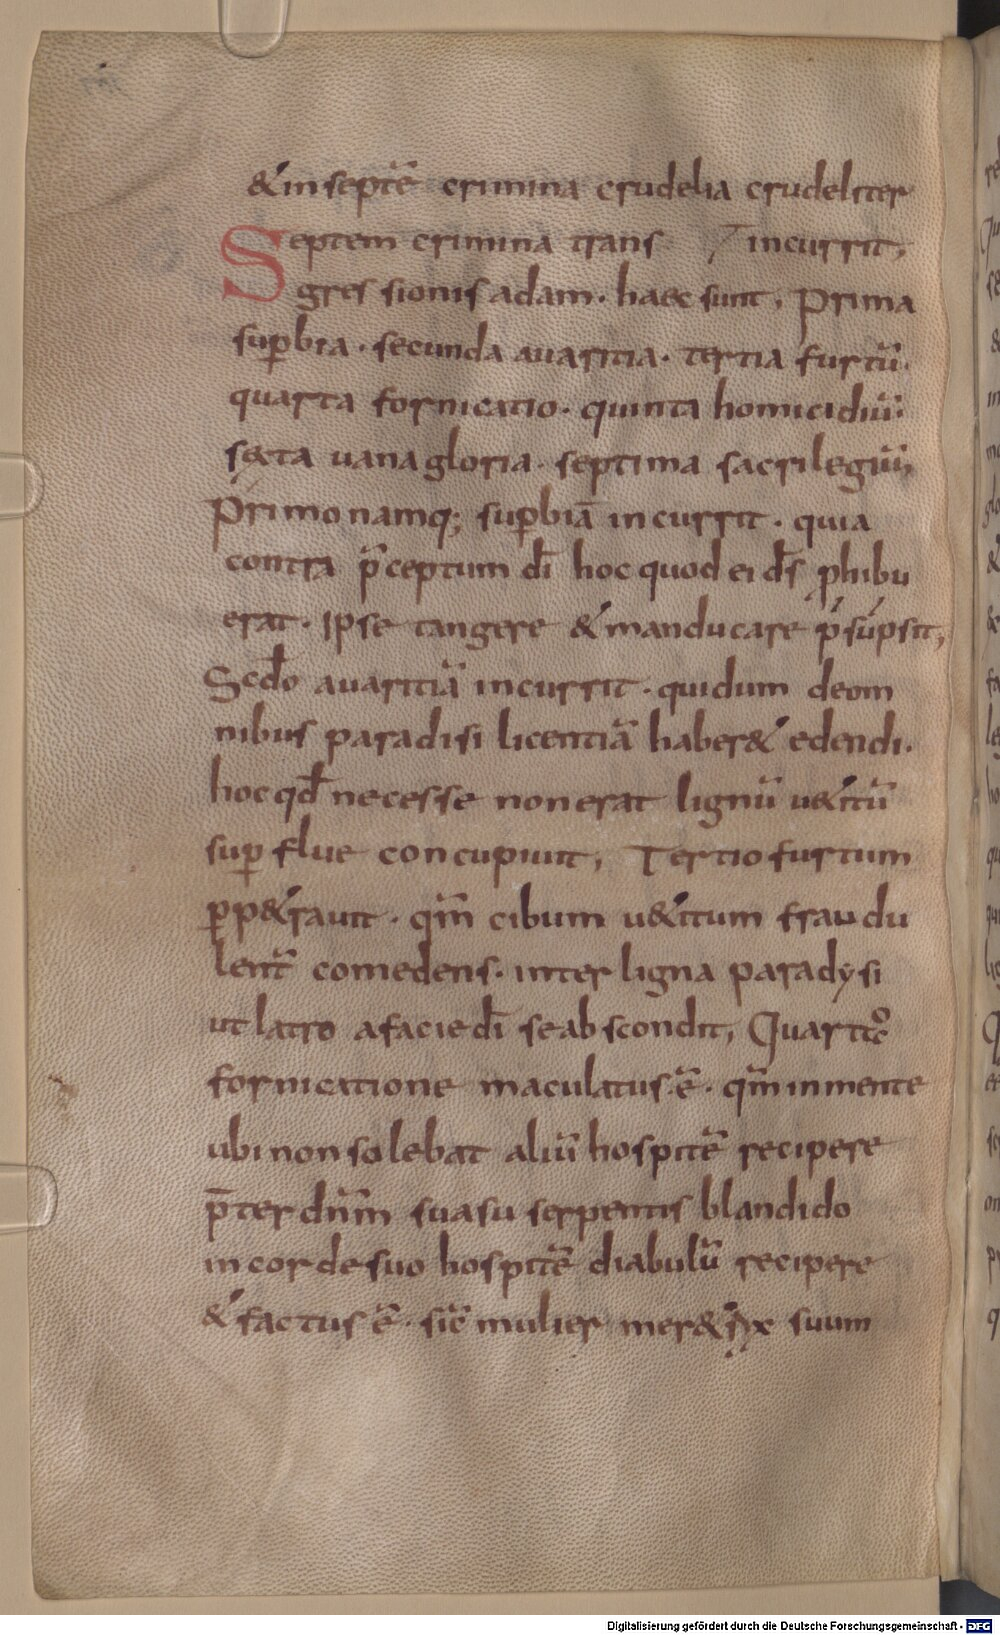 & in septē crimina crudelia crudeliter
Septem crimina trans / incurrit;
gressionis adam. haec sunt; Prima
sup̱bia. secunda auaritia. tertia furtū.
quarta fornicatio. quinta homicidiū.
sexta uana gloria. septima sacrilegiū;
Primo namq; sup̱biā incurrit. quia
contra p̄ceptum dī hoc quod ei ds̄ ꝓhibu
erat. Ipse tangere & manducare p̄sūpsit;
Scdo auaritiā incurrit. qui dum de om
nibus paradisi licentiā haber& edendi.
hoc qđ necesse non erat lignū u&itū
sup̱flue concupiuit; Tertio furtum
ꝑp&rauit. qm̄ cibum u&itum fraudu
lent̄ comedens. inter ligna paradysi
ut latro a facie dī se abscondit; Quarto
fornicatione maculatus ē. qm̄ in mente
ubi non solebat aliū hospitē recipere
p̄ter dnm̄ suasu serpentis blandido
in corde suo hospitē diabulū recipere
& factus ē. sic mulier mer&rix suum
Digitalisierung gefördert durch die Deutsche Forschungsgemeinschaft - DFG